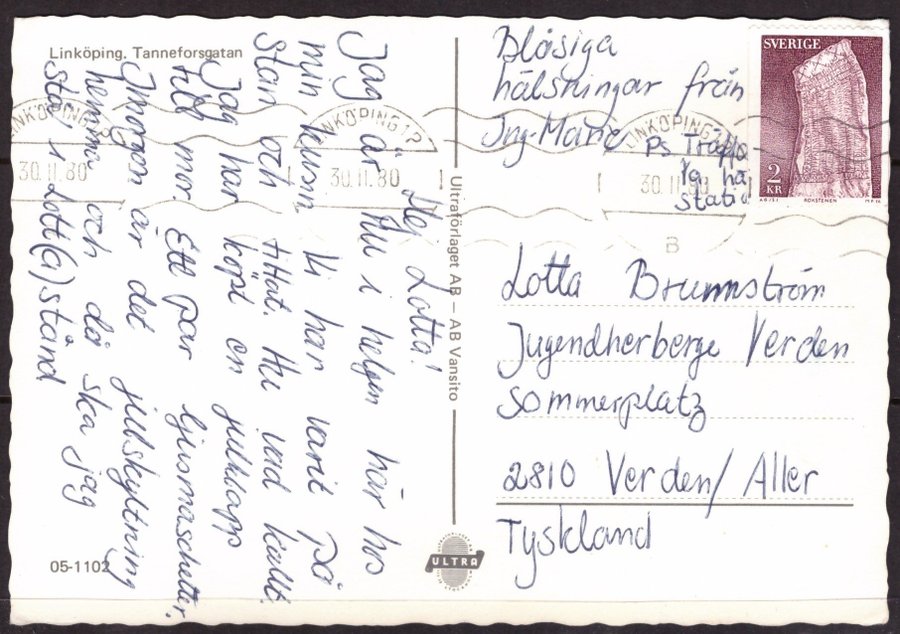 Linköping. Tanneforsgatan
Hej Lotta!
Jag är nu i helgen här hos
min kusin. Vi har varit på
stan och tittat. Hu vad kallt.
Jag har köpt en julklapp
till mor. Ett par ljusmaschetter.
Imorgon är det julskyltning
hemma och då ska jag
stå i Lott(a)stånd
05-1102
Ultraförlaget AB – AB Vansito
ULTRA
Blåsiga
hälsningar från
Ing-Marie
Ps
SVERIGE
2
KR
ROKSTENEN
LINKÖPING 1
30.11.80
LINKÖPING 1
30.11.80
LINKÖPING 1
30.11.80
B
Lotta Brunnström
Jugendherberge Verden
Sommerplatz
2810 Verden/Aller
Tyskland